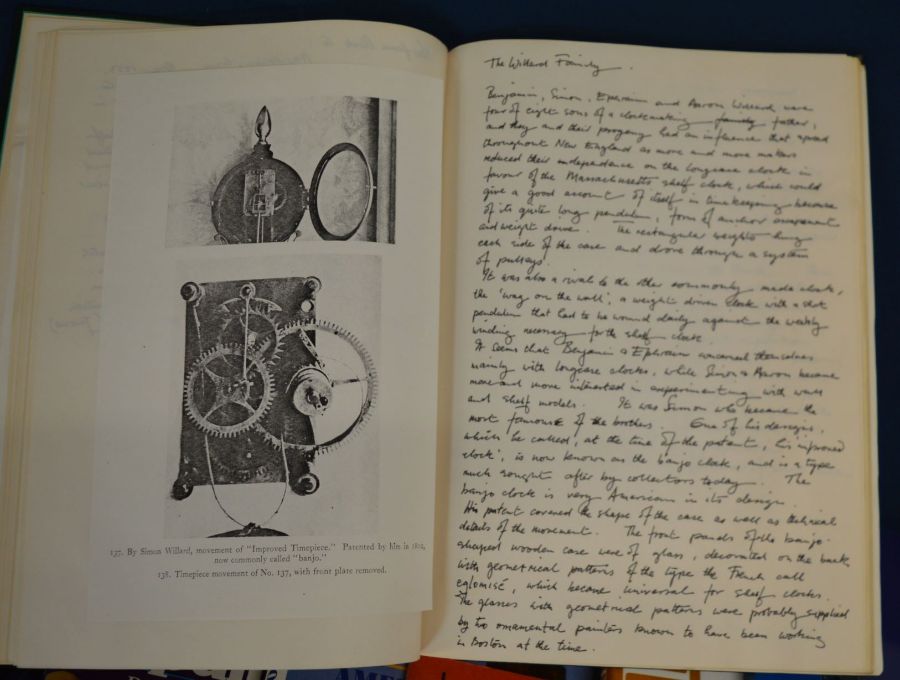 137. By Simon Willard, movement of "Improved Timepiece." Patented by him in 1802,
now commonly called "banjo."
138. Timepiece movement of No. 137, with front plate removed.
The Willard Family.
Benjamin, Simon, Ephraim and Aaron Willard were
four of eight sons of a clockmaking family father,
and they and their progeny had an influence that spread
throughout New England as more and more makers
reduced their independence on the longcase clock in
favour of the Massachusetts shelf clock, which could
give a good account of itself in timekeeping because
of its quite long pendulum, form of anchor escapement
and weight drive. The rectangular weights hung
each side of the case and drove through a system
of pulleys.
It was also a rival to the other commonly made clock,
the 'wag on the wall', a weight driven clock with a short
pendulum that had to be wound daily against the weekly
winding necessary for the shelf clock.
It seems that Benjamin & Ephraim concerned themselves
mainly with longcase clocks, while Simon & Aaron became
more and more interested in experimenting with wall
and shelf models. It was Simon who became the
most famous of the brothers. One of his designs,
which he called, at the time of the patent, his 'improved
clock', is now known as the banjo clock, and is a type
much sought after by collectors today. The
banjo clock is very American in its design.
His patent covered the shape of the case as well as technical
details of the movement. The front panels of the banjo-
shaped wooden case were of glass, decorated on the back,
with geometrical patterns of the type the French call
eglomisé, which became universal for shelf clocks.
The glasses with geometrical patterns were probably supplied
by two ornamental painters known to have been working
in Boston at the time.